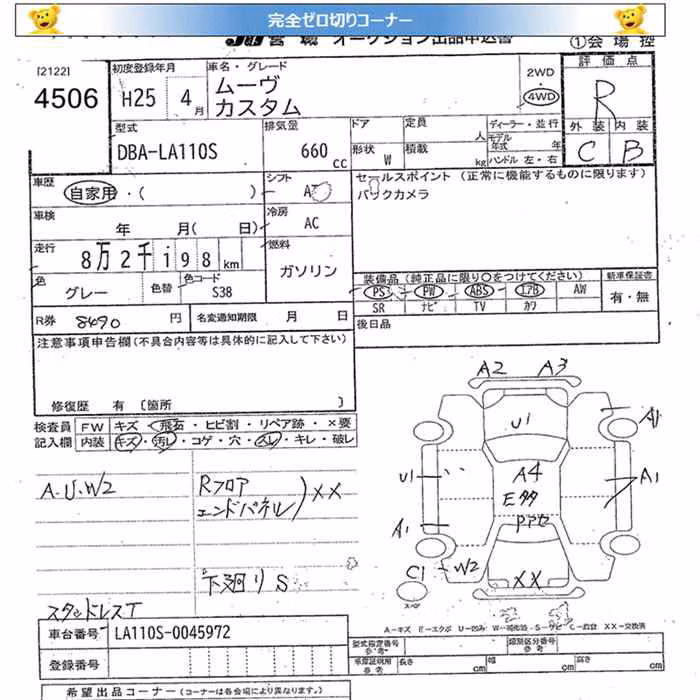 完全ゼロ切りコーナー
JU宮城 オークション出品申込書 ①会場控
[2122]
4506
初度登録年月 H25 4月
車名・グレード
ムーヴ
カスタム
2WD
4WD
評価点
R
外装 内装
C B
型式
DBA-LA110S
排気量
660 cc
ドア
形状 W
定員 人
積載 kg
ディーラー・並行
モデル年式 年
ハンドル 左・右
車歴
自家用・( )
シフト
A
セールスポイント (正常に機能するものに限ります)
バックカメラ
車検
年 月( 日)
冷房
AC
走行
8万2千198km
燃料
ガソリン
色
グレー
色替
色コード
S38
装備品 (純正品に限り○をつけてください)
PS PW ABS エアB AW
SR ナビ TV カワ
新車保証書
有・無
R券 8490 円
名変通知期限 月 日
後日品
注意事項申告欄 (不具合内容等は具体的に記入して下さい)
修復歴 有 [箇所 ]
検査員 FW キズ・飛石・ヒビ割・リペア跡・×要
記入欄 内装 キズ・汚レ・コゲ・穴・スレ・キレ・破レ
A.U.W2
Rフロア
エンドパネル
XX
下廻りS
スタッドレスT
A2 A3
U1
A1
U1
A4
A1
A1
C1
W2
XX
スペア
A-キズ E-エクボ U-凹み W-補修跡 S-サビ C-腐食 XX-交換済
車台番号 LA110S-0045972
登録番号
型式指定番号 参考
類別区分番号 参考
車庫証明用 参考
長さ cm 幅 cm 高さ cm
希望出品コーナー (コーナーは各会場により異なります。)